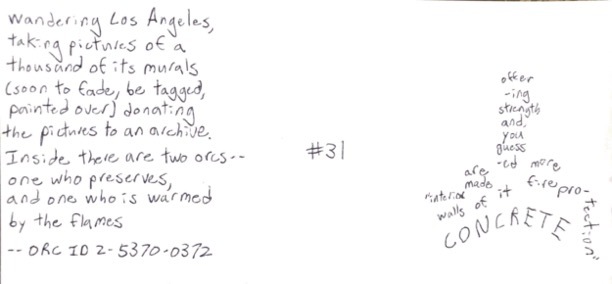 Wandering Los Angeles,
taking pictures of a
thousand of its murals
(soon to fade, be tagged,
painted over) donating
the pictures to an archive.
Inside there are two orcs--
one who preserves,
and one who is warmed
by the flames
-- ORC ID 2-5370-0372
#31
offer
-ing
strength
and,
you
guess
-ed more
fire pro-
tection"
"interior
walls
are
made
of it
CONCRETE